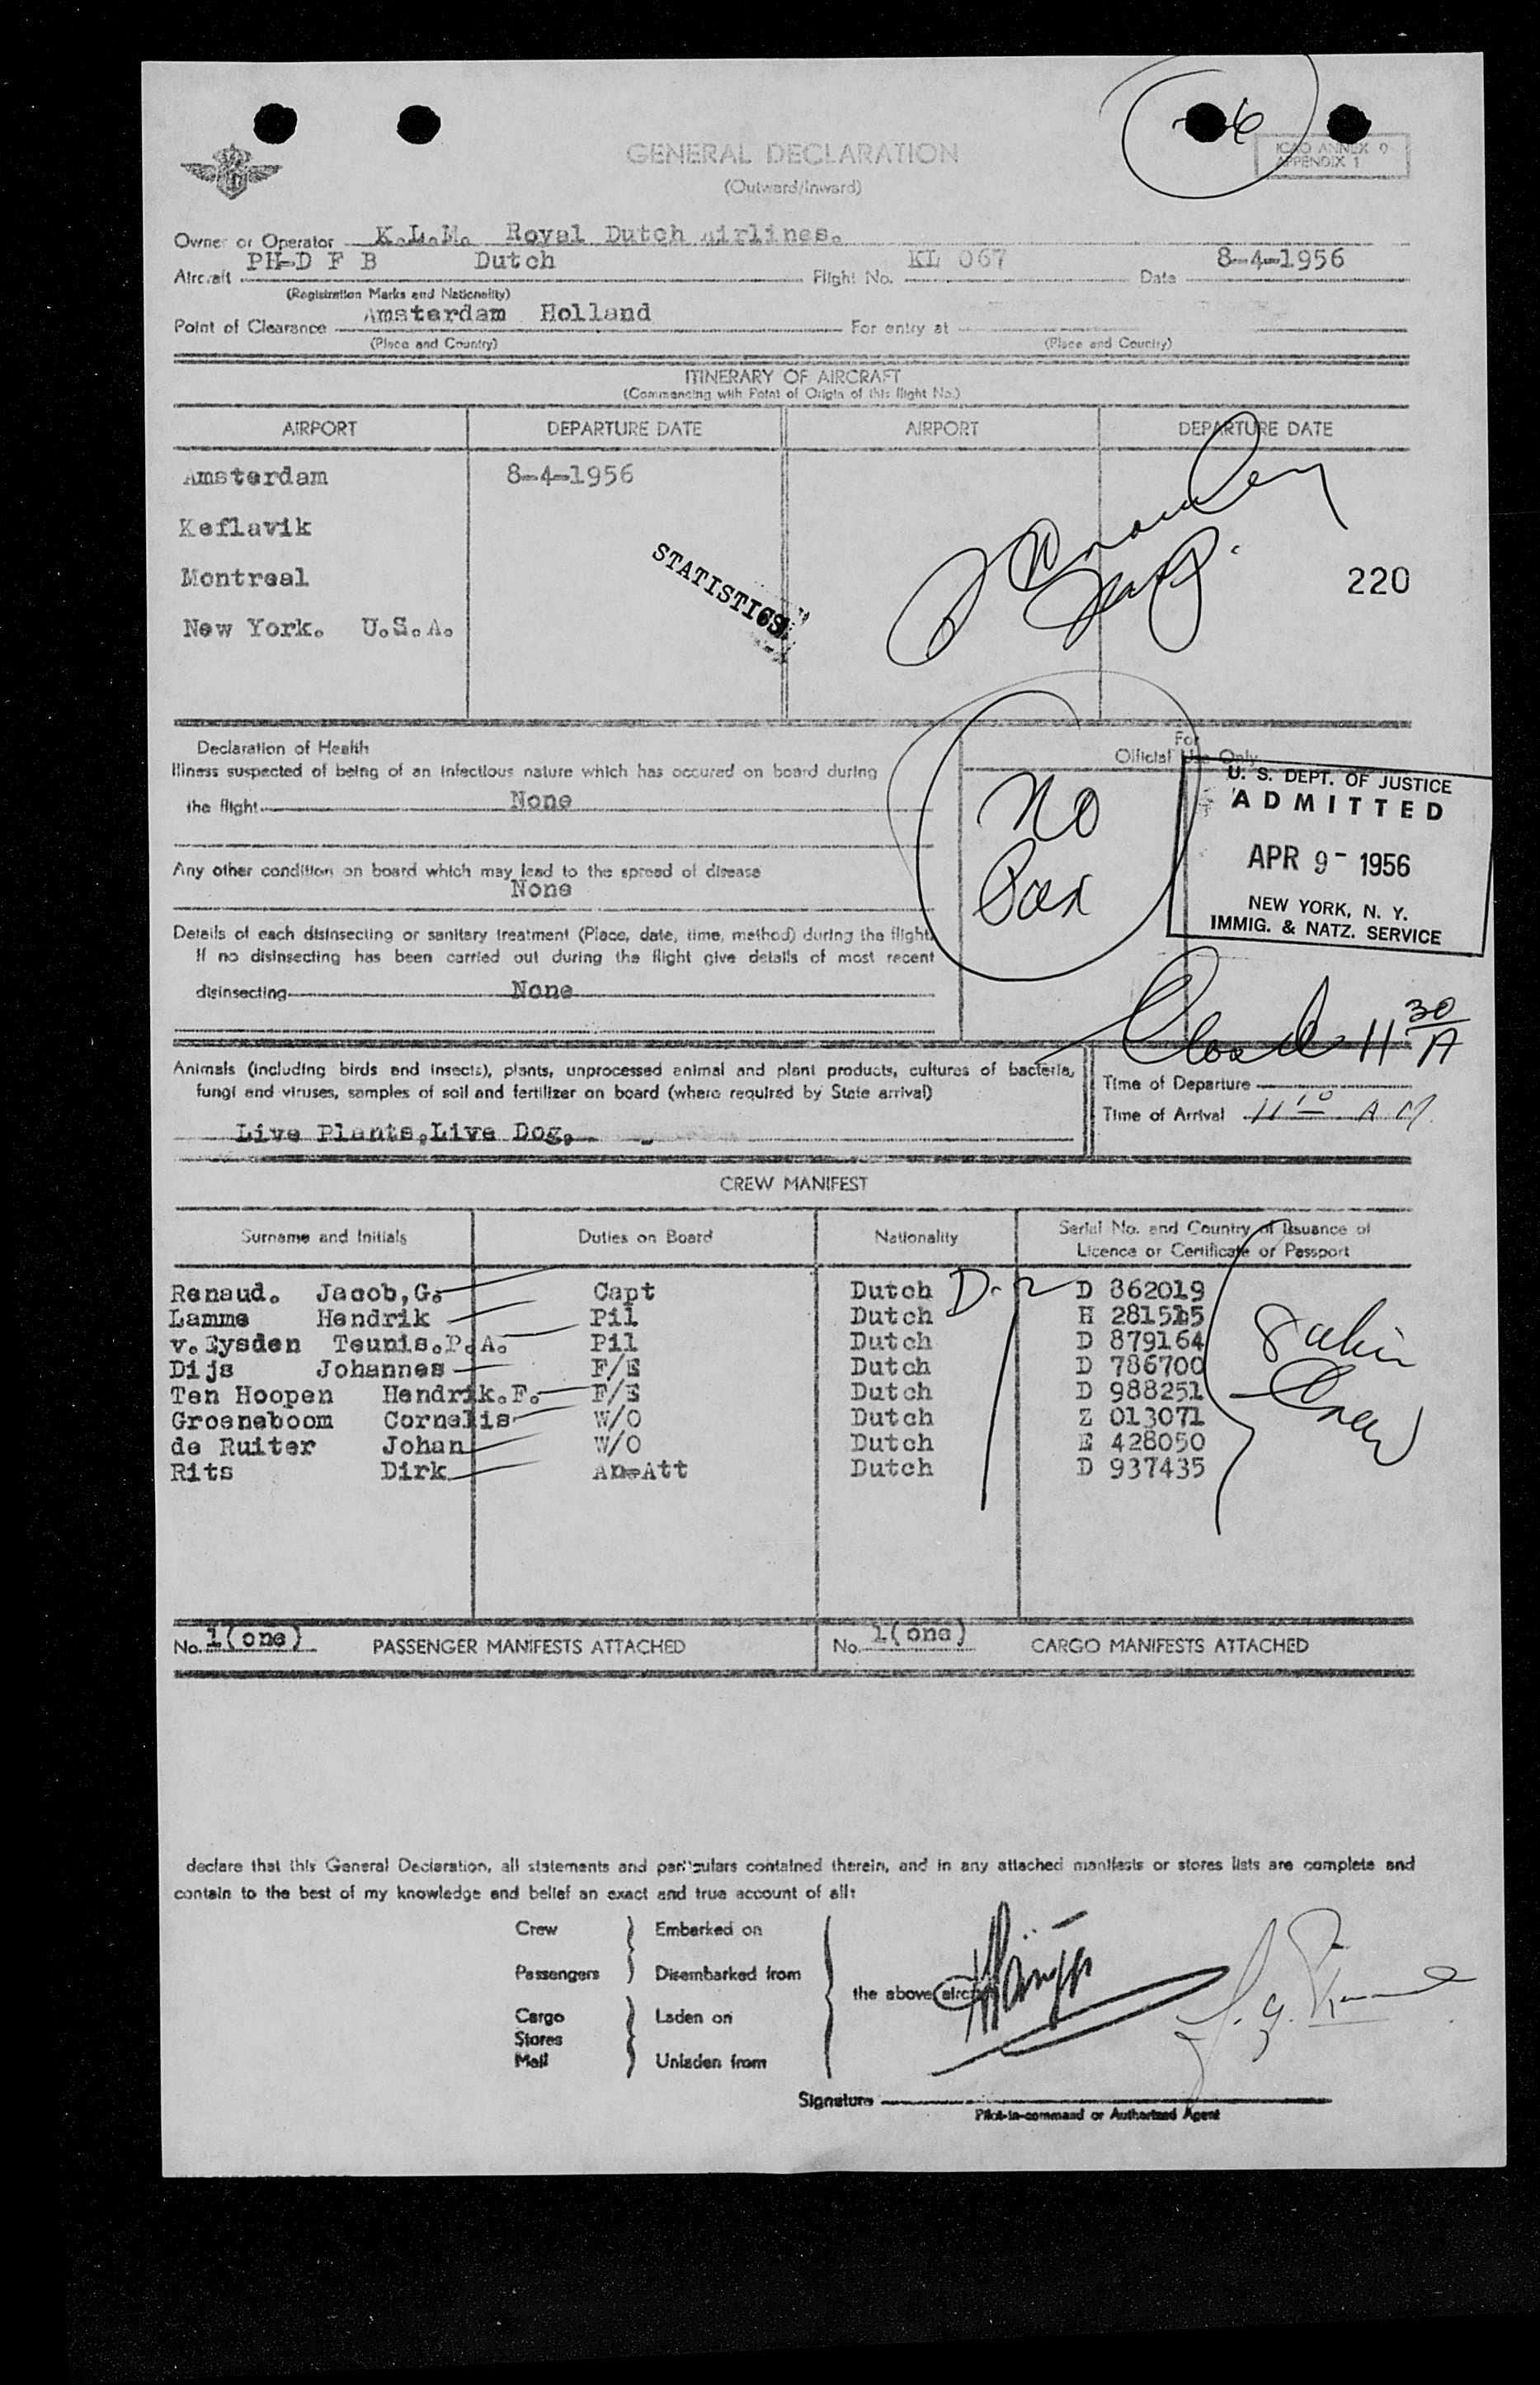 6
GENERAL DECLARATION
(Outward/Inward)
ICAO ANNEX 9
APPENDIX 1
Owner or Operator K.L.M. Royal Dutch Airlines.
Aircraft PH-D F B Dutch Flight No. KL 067 Date 8-4-1956
(Registration Marks and Nationality)
Point of Clearance Amsterdam Holland For entry at
(Place and Country) (Place and Country)
ITINERARY OF AIRCRAFT
(Commencing with Point of Origin of this flight No.)
AIRPORT DEPARTURE DATE AIRPORT DEPARTURE DATE
Amsterdam 8-4-1956
Keflavik
Montreal
New York. U.S.A.
STATISTICS
220
Declaration of Health
Illness suspected of being of an infectious nature which has occured on board during
the flight None
Any other condition on board which may lead to the spread of disease
None
Details of each disinsecting or sanitary treatment (Place, date, time, method) during the flight.
If no disinsecting has been carried out during the flight give details of most recent
disinsecting None
For
Official Use Only
No
Pax
U. S. DEPT. OF JUSTICE
ADMITTED
APR 9- 1956
NEW YORK, N. Y.
IMMIG. & NATZ. SERVICE
11 30 A
Animals (including birds and insects), plants, unprocessed animal and plant products, cultures of bacteria,
fungi and viruses, samples of soil and fertilizer on board (where required by State arrival)
Live Plants,Live Dog,
Time of Departure
Time of Arrival 11 10 A M.
CREW MANIFEST
Surname and Initials Duties on Board Nationality Serial No. and Country of Issuance of
Licence or Certificate or Passport
Renaud. Jacob,G. Capt Dutch D-2 D 862019
Lamme Hendrik Pil Dutch H 281515
v.Eysden Teunis.P.A. Pil Dutch D 879164
Dijs Johannes F/E Dutch D 786700
Ten Hoopen Hendrik.F. F/E Dutch D 988251
Groeneboom Cornelis W/O Dutch Z 013071
de Ruiter Johan W/O Dutch E 428050
Rits Dirk An-Att Dutch D 937435
Crew
No. 1(one) PASSENGER MANIFESTS ATTACHED No. 1(one) CARGO MANIFESTS ATTACHED
declare that this General Declaration, all statements and particulars contained therein, and in any attached manifests or stores lists are complete and
contain to the best of my knowledge and belief an exact and true account of all:
Crew Embarked on
Passengers Disembarked from
the above aircraft
Cargo Laden on
Stores
Mail Unladen from
Signature
Pilot-in-command or Authorized Agent